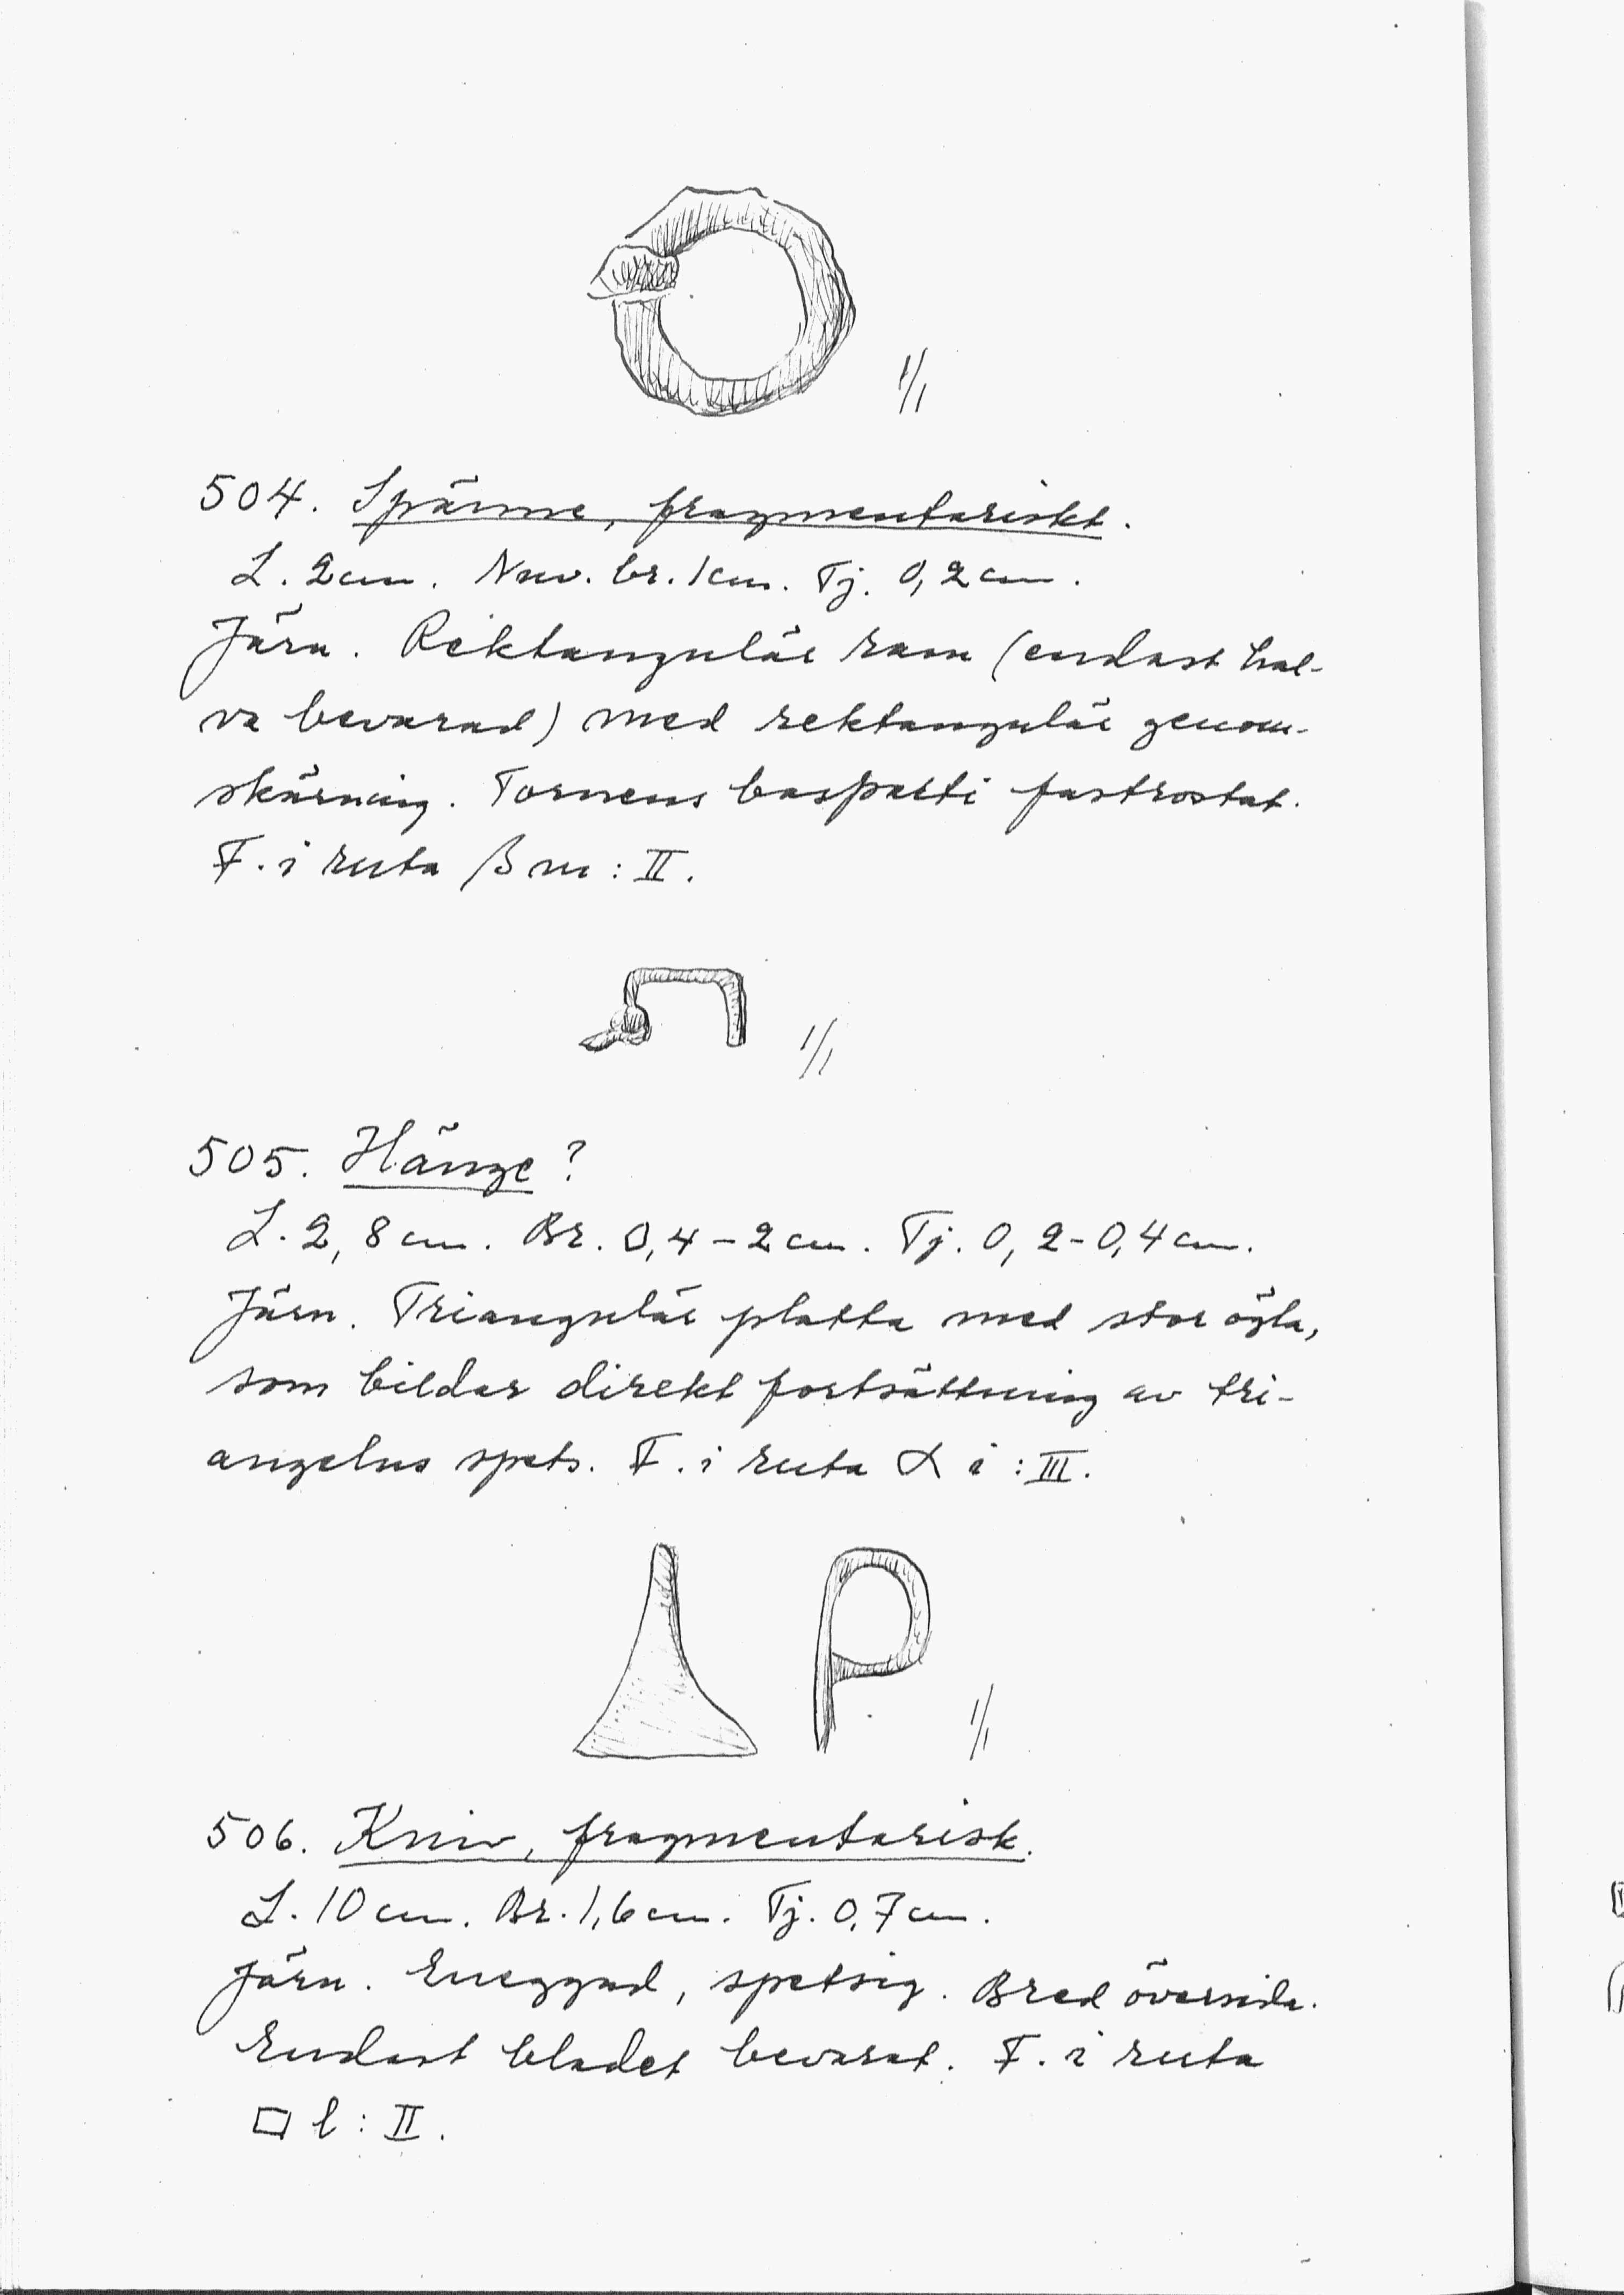 1/1
504. Spänne, fragmentariskt.
L. 2cm. Nuv. br. 1cm. Tj. 0,2cm.
Järn. Rektangulär ram (endast hal-
va bevarad) med rektangulär genom-
skärning. Tornens basparti fastrostat.
F. i ruta β m : II.
1/1
505. Hänge?
L. 2,8cm. Br. 0,4-2cm. Tj. 0,2-0,4cm.
Järn. Triangulär platta med stor ögla,
som bildar direkt fortsättning av tri-
angelns spets. F. i ruta α i : III.
1/1
506. Kniv, fragmentarisk.
L. 10cm. Br. 1,6cm. Tj. 0,7cm.
Järn. Eneggad, spetsig. Bred översida.
Endast bladet bevarat. F. i ruta
□ l : II.